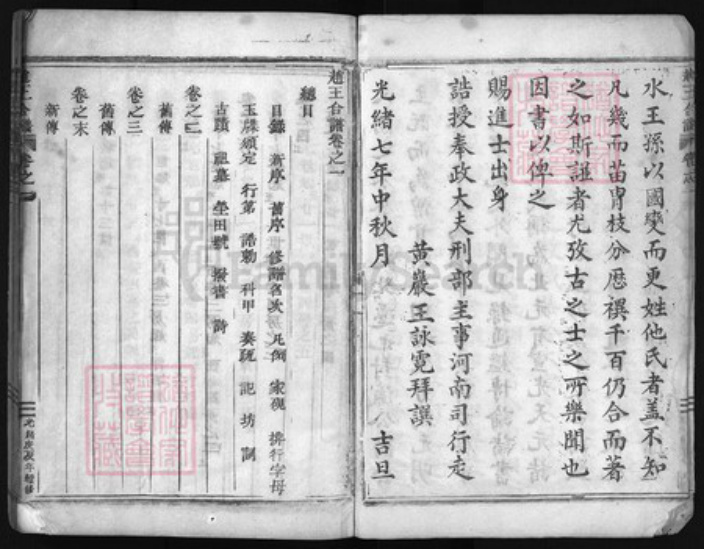 水王孫以國變而更姓他氏者蓋不知
凡幾而苗胄枝分歷禩千百仍合而著
之如斯譜者尤攷古之士之所樂聞也
因書以俾之
賜進士出身
誥授奉政大夫刑部主事河南司行走
黃巖王詠霓拜譔
光緒七年中秋月 吉旦
趙王合譜卷之一
總目
目錄 新序 舊序 修譜名次 凡例 家規 排行字母
玉牒顏定 行第 誥勅 科甲 奏疏 記 坊 制
古蹟 祖墓 坐田號 詩
卷之二
舊傳
卷之三
舊傳
卷之末
新傳
FamilySearch